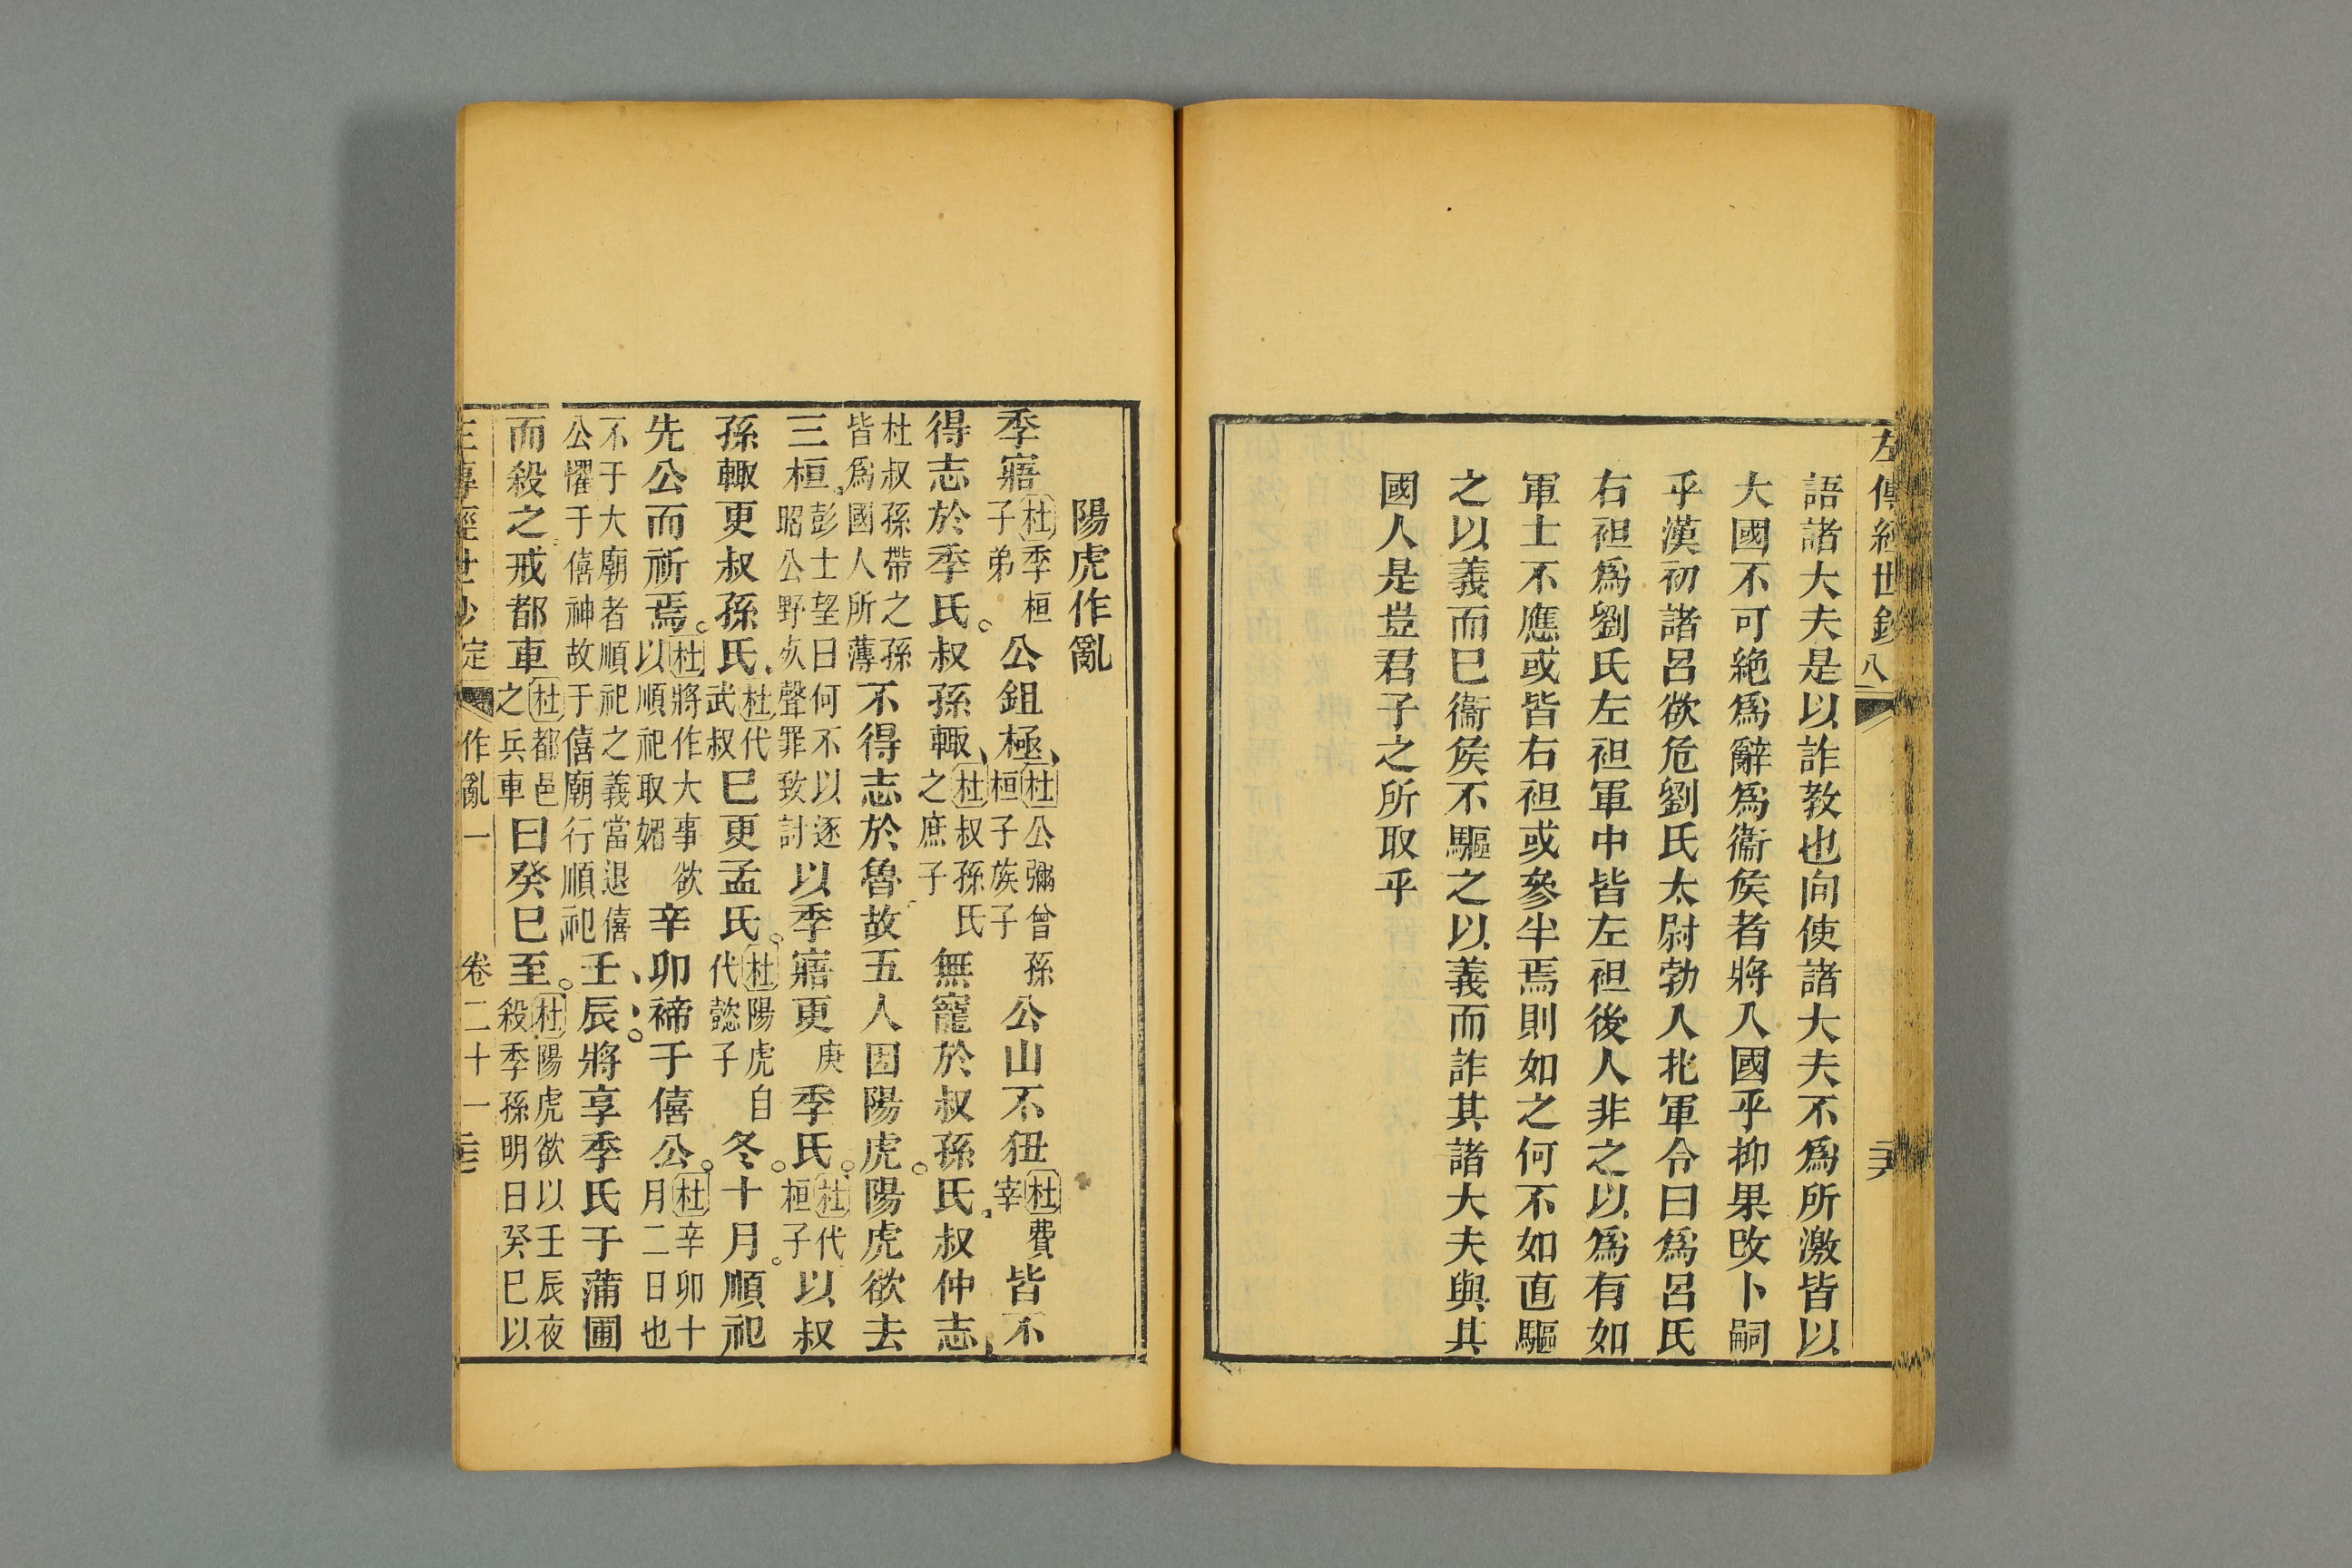 左傳經世鈔 八
語諸大夫是以詐教也向使諸大夫不爲所激皆以
大國不可絶爲辭爲衞侯者將入國乎抑果改卜嗣
乎漢初諸呂欲危劉氏太尉勃入北軍令曰爲呂氏
右袒爲劉氏左袒軍中皆左袒後人非之以爲有如
軍士不應或皆右袒或參半焉則如之何不如直驅
之以義而已衞侯不驅之以義而詐其諸大夫與其
國人是豈君子之所取乎
陽虎作亂
季寤杜季桓子弟公鉏極杜公彌曾孫桓子族子公山不狃杜費宰皆不
得志於季氏叔孫輒杜叔孫氏之庶子無寵於叔孫氏叔仲志
杜叔孫帶之孫皆爲國人所薄不得志於魯故五人因陽虎陽虎欲去
三桓彭士望曰何不以逐昭公野夊聲罪致討以季寤更庚季氏杜代桓子以叔
孫輒更叔孫氏杜代武叔已更孟氏杜陽虎自代懿子冬十月順祀
先公而祈焉杜將作大事欲以順祀取媚辛卯禘于僖公杜辛卯十月二日也
不于大廟者順祀之義當退僖公懼于僖神故于僖廟行順祀壬辰將享季氏于蒲圃
而殺之戒都車杜都邑之兵車曰癸巳至杜陽虎欲以壬辰夜殺季孫明日癸巳以
作亂一 卷二十一